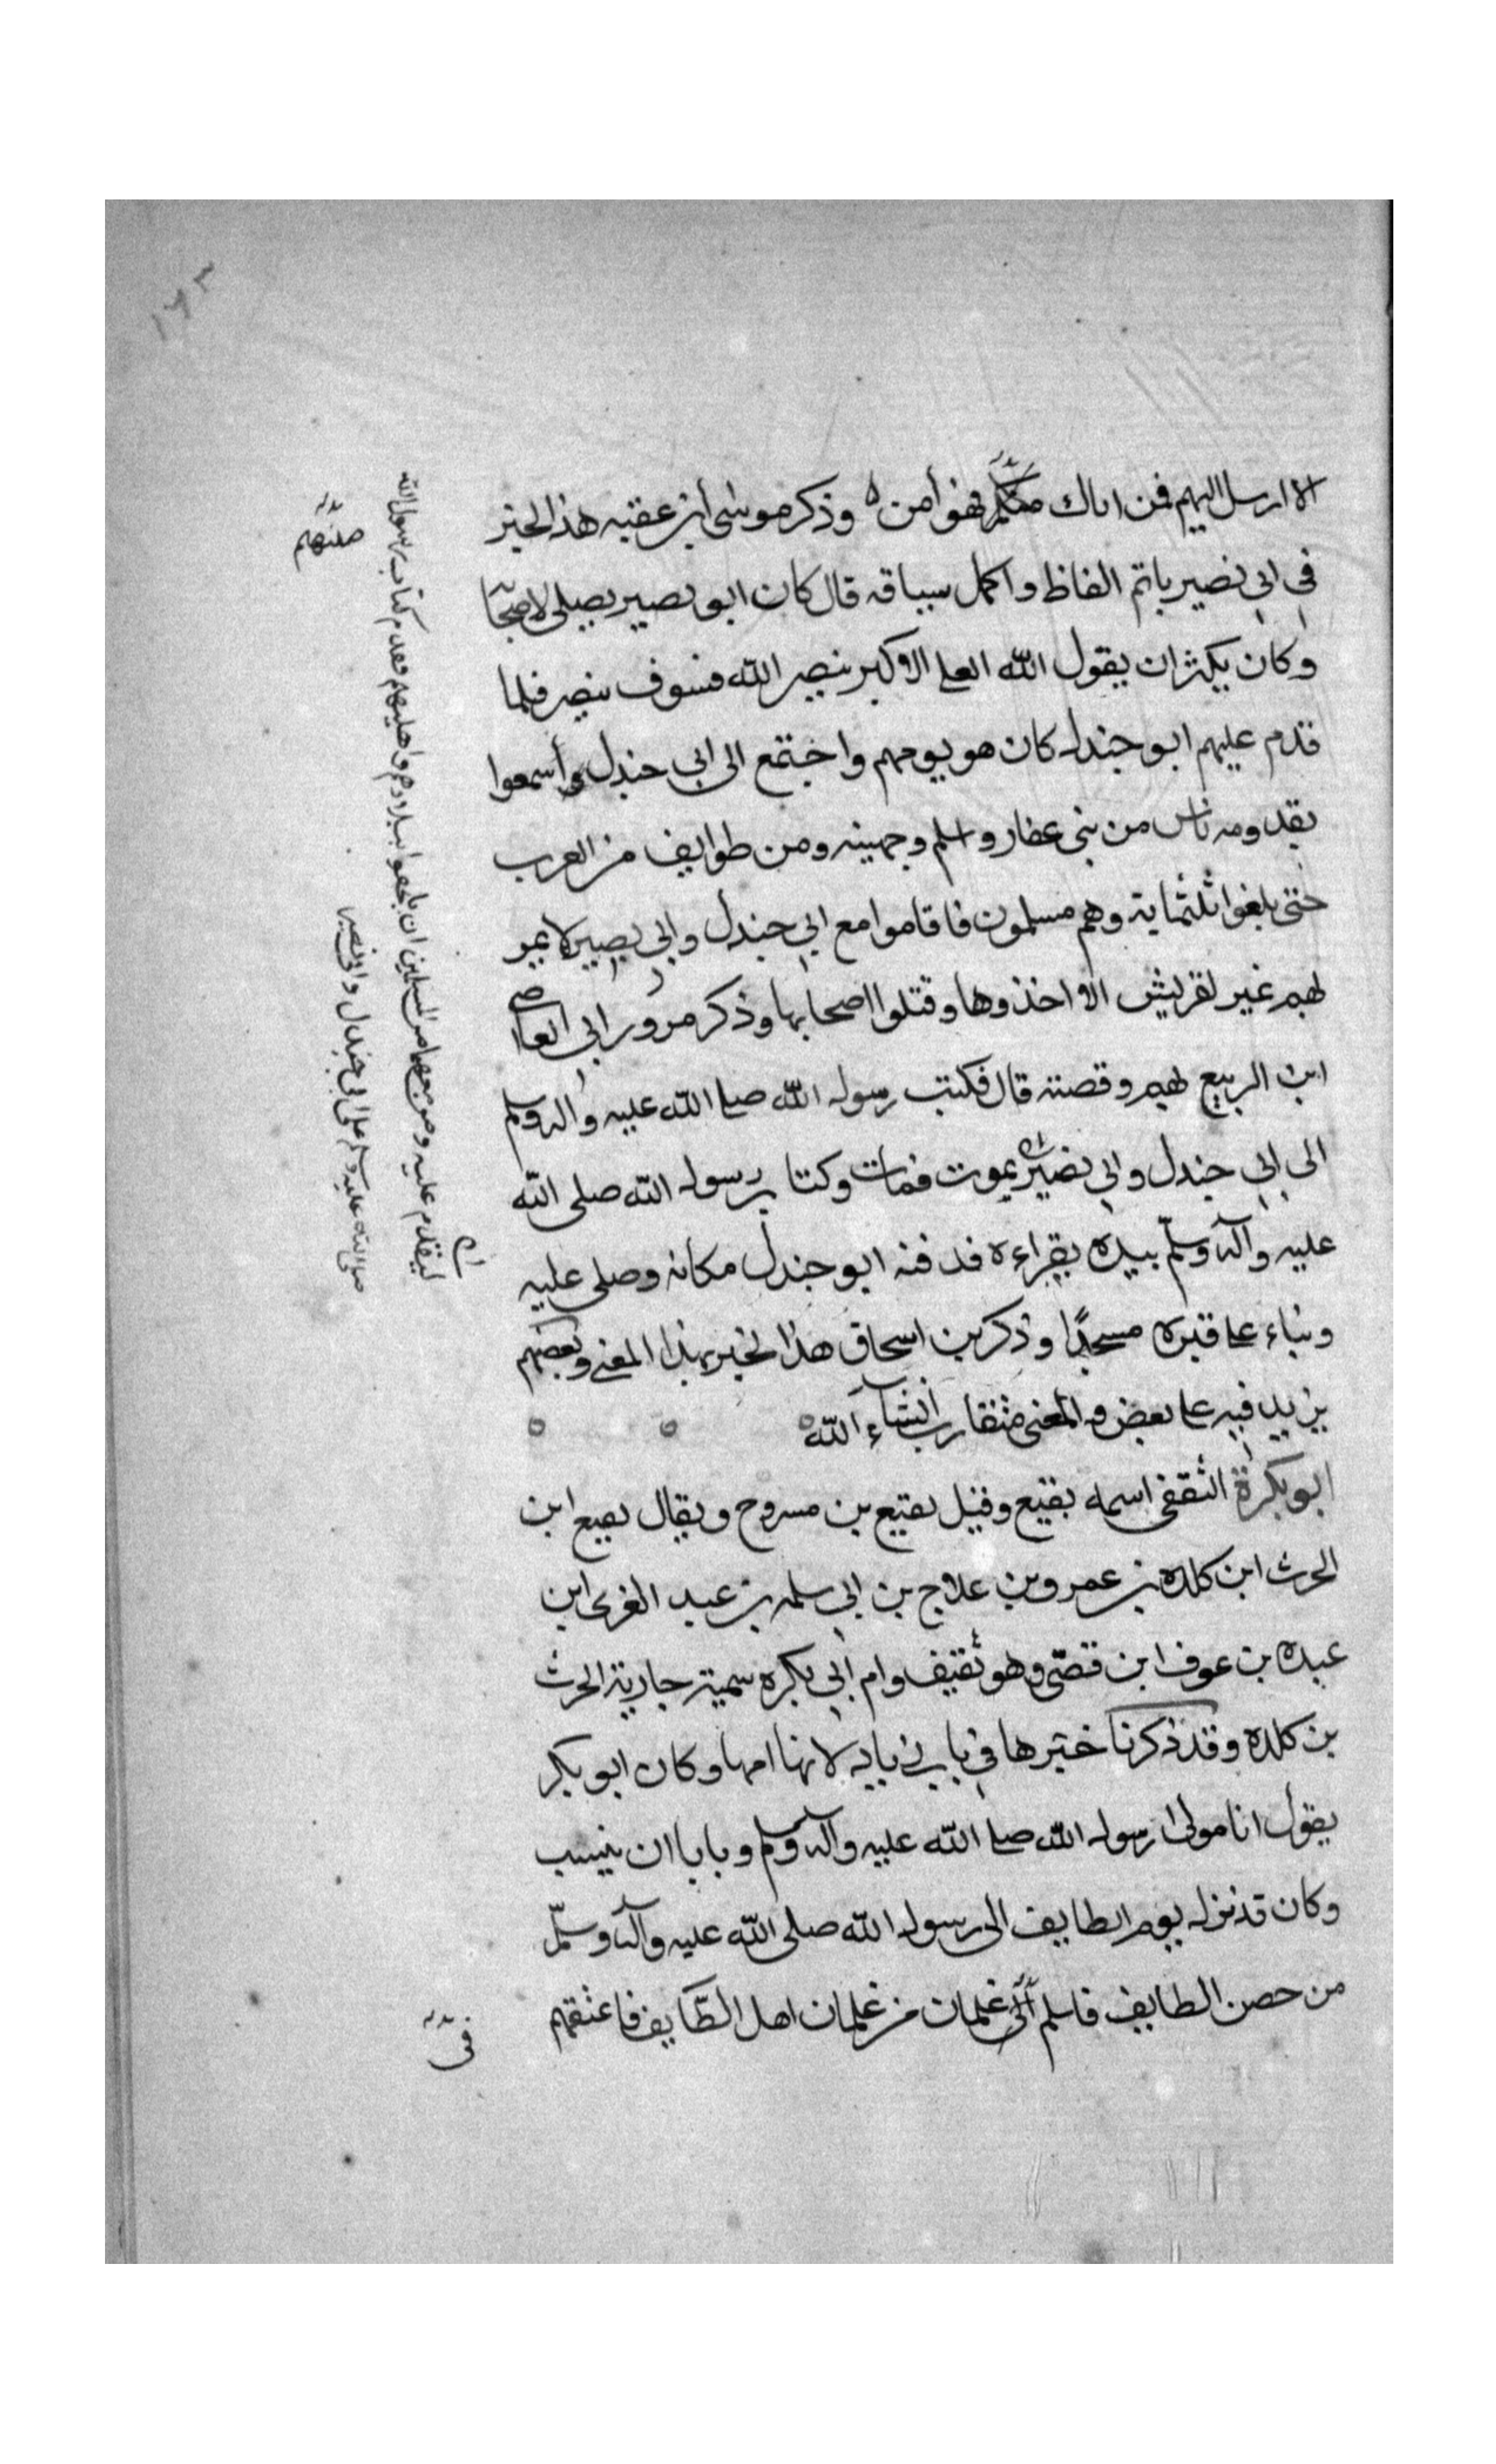 ١٦٣
الا ارسل اليهم فمن اتاك منهم فهو أمن ه وذكر موسى أبن عقبه هذ الخبر
في ابي نصير باتم الفاظ واكمل سياقه قال كان ابو نصير يصلي لاصحا
وكان يكثر ان يقول الله العلي الاكبر ينصر الله فسوف ينصر فلما
قدم عليهم ابو جندل كان هو يومهم واجتمع الى ابي جندل وأسمعوا
بقدومه ناس من بني غفار واسلم وجهينه ومن طوايف من العرب
حتى بلغوا ثلثماية وهم مسلمون فاقاموا مع ابي جندل وابي بصير لا يمر
لهم عير لقريش الا اخذوها وقتلوا اصحابها وذكر مرور ابي العاص
ابن الربيع لهم وقصته قال فكتب رسول الله صلى الله عليه واله وسلم
الى ابي جندل وابي نصير يموت فمات وكتاب رسول الله صلى الله
عليه وآله وسلم بيده يقراءه فدفنه ابو جندل مكانه وصلى عليه
وبناء على قبره مسجدًا وذكر بن اسحاق هذا الخبر بهذا المعنى وبعضهم
يزيد فيه على بعض والمعنى متقارب انشاء الله ه ه ه
ابو بكرة الثقفي اسمه بقيع وقيل بقيع بن مسروح ويقال بقيع ابن
الحرث ابن كلده بن عمرو بن علاج بن ابي سلمه بن عبد العزى ابن
عبده بن عوف ابن قصي وهو ثقيف وام ابي بكره سمية جارية الحرث
بن كلده وقد ذكرنا خبرها في باب زياد لانها امها وكان ابو بكر
يقول انا مولى رسول الله صلى الله عليه واله وسلم ويابا ان ينسب
وكان قد نزل يوم الطايف الى رسول الله صلى الله عليه وآله وسلم
من حصن الطايف فاسلم الى غلمان من غلمان اهل الطايف فاعتقهم
فى
ليقدم عليه ومن معهما من المسلمين ان يلحقوا ببلادهم واهليهم فقدم كتاب رسول الله
صلى الله عليه وسلم على ابي جندل وابو نصير
منهم